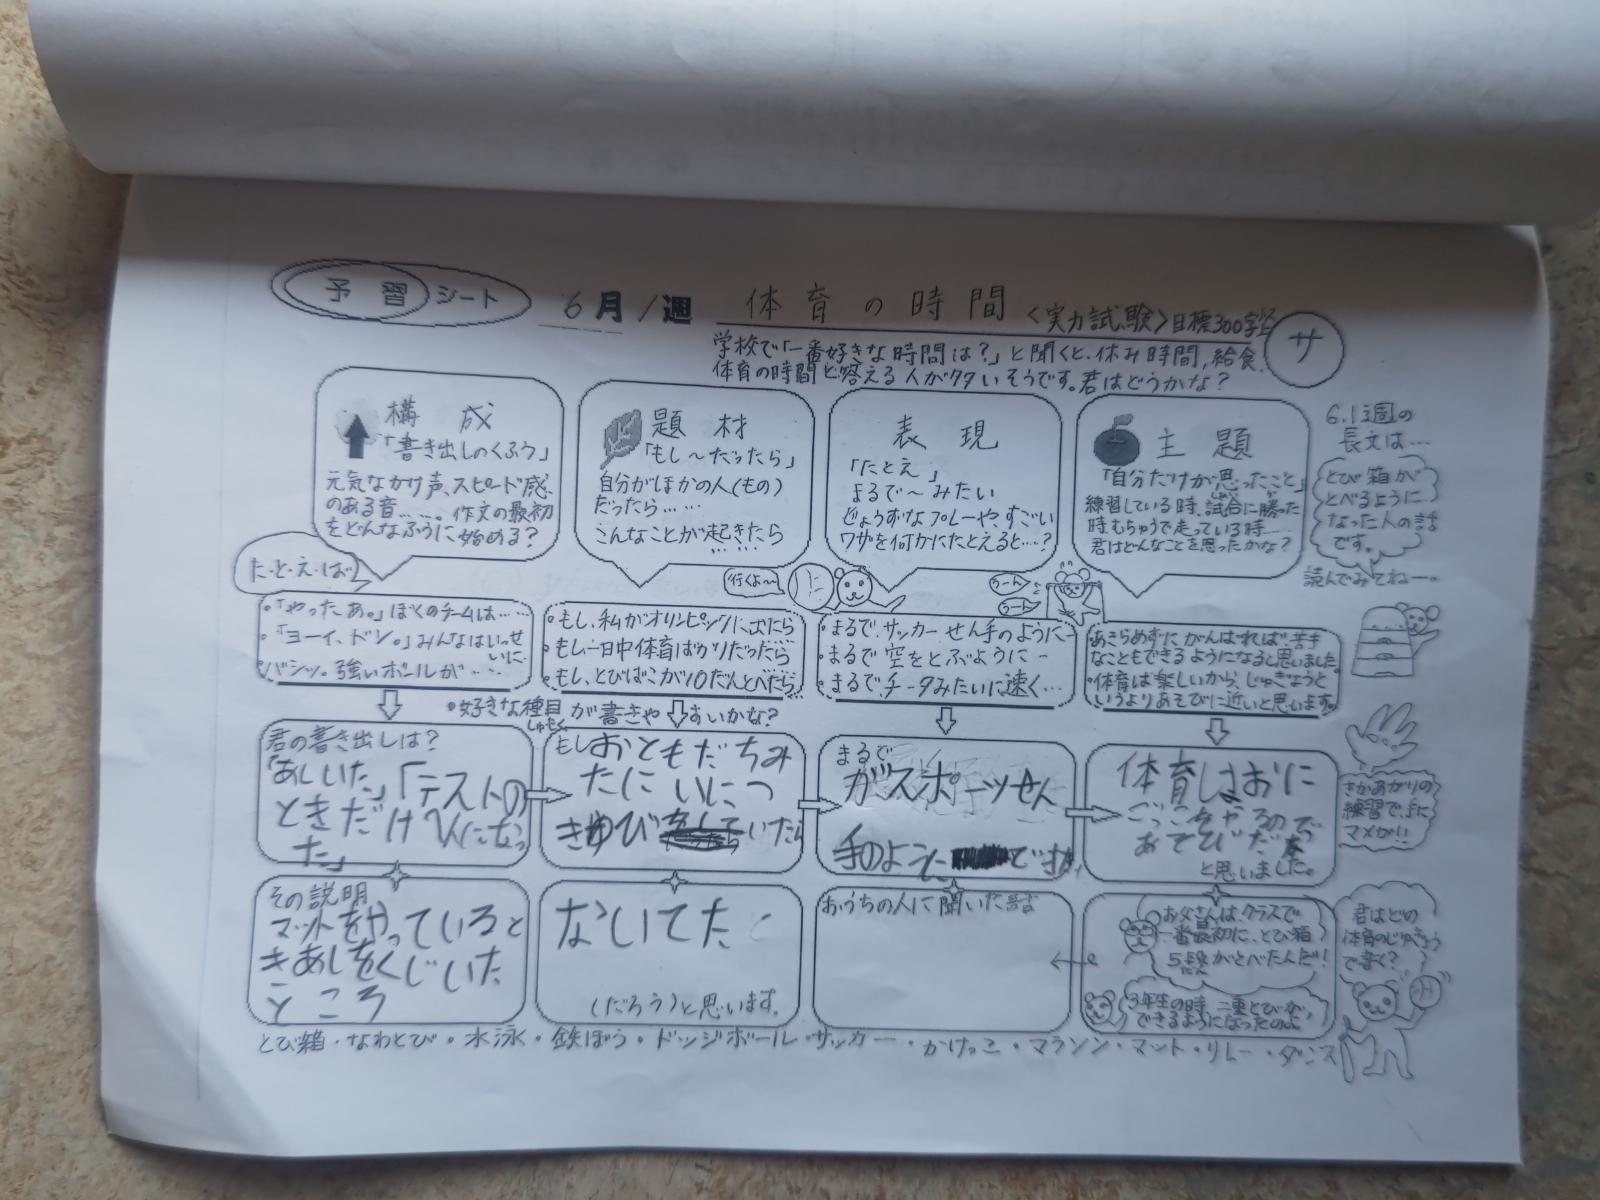 予習シート 6月1週 体育の時間 <実力試験>目標300字 サ
学校で「一番好きな時間は?」と聞くと、休み時間、給食、
体育の時間と答える人が多いそうです。君はどうかな?
構成
「書き出しのくふう」
元気なかけ声、スピード感
のある音……。作文の最初
をどんなふうに始める?
題材
「もし~だったら」
自分がほかの人(もの)
だったら……
こんなことが起きたら
……
表現
「たとえ」
まるで~みたい
じょうずなプレーや、すごい
ワザを何かにたとえると…?
主題
「自分だけが思ったこと」
練習している時、試合に勝った
時むちゅうで走っている時…
君はどんなことを思ったかな?
6.1週の
長文は…
とび箱が
とべるように
なった人の話
です。
読んでみてねー。
た・と・え・ば
・「やったあ。」ぼくのチームは……
・「ヨーイ、ドン。」みんなはいっせ
いに…
・バシッ。強いボールが……
行くよ~
・もし、私がオリンピックに出たら
・もし一日中体育ばかりだったら
・もし、とびばこが10だんとべたら
うーん
うーん
・まるで、サッカーせん手のように…
・まるで空をとぶように…
・まるで、チータみたいに速く…
・あきらめずにがんばれば苦手
なこともできるようになると思いました。
・体育は楽しいから、じゅぎょうと
いうよりあそびに近いと思います。
・好きな種目が書きやすいかな?
しゅもく
君の書き出しは?
「あしいた。」「テストの
ときだけへんになっ
た」
もしおともだちみ
たにいにつ
きゆび
いたら
まるで
ガスポーツせん
手のように
体育はおに
ごっこをやるので
と思いました。
さかあがりの
練習で、手に
マメが!!
その説明
マットをやっていると
きあしをくじいた
ところ
ないてた
(だろう)と思います。
おうちの人に聞いた話
お父さんは、クラスで
一番最初に、とび箱
5段がとべたんだ!
だん
3年生の時、二重とびが、
できるようになったのよ
君はどの
体育のじゅぎょう
で書く?
とび箱・なわとび・水泳・鉄ぼう・ドッジボール・サッカー・かけっこ・マラソン・マット・リレー・ダンス